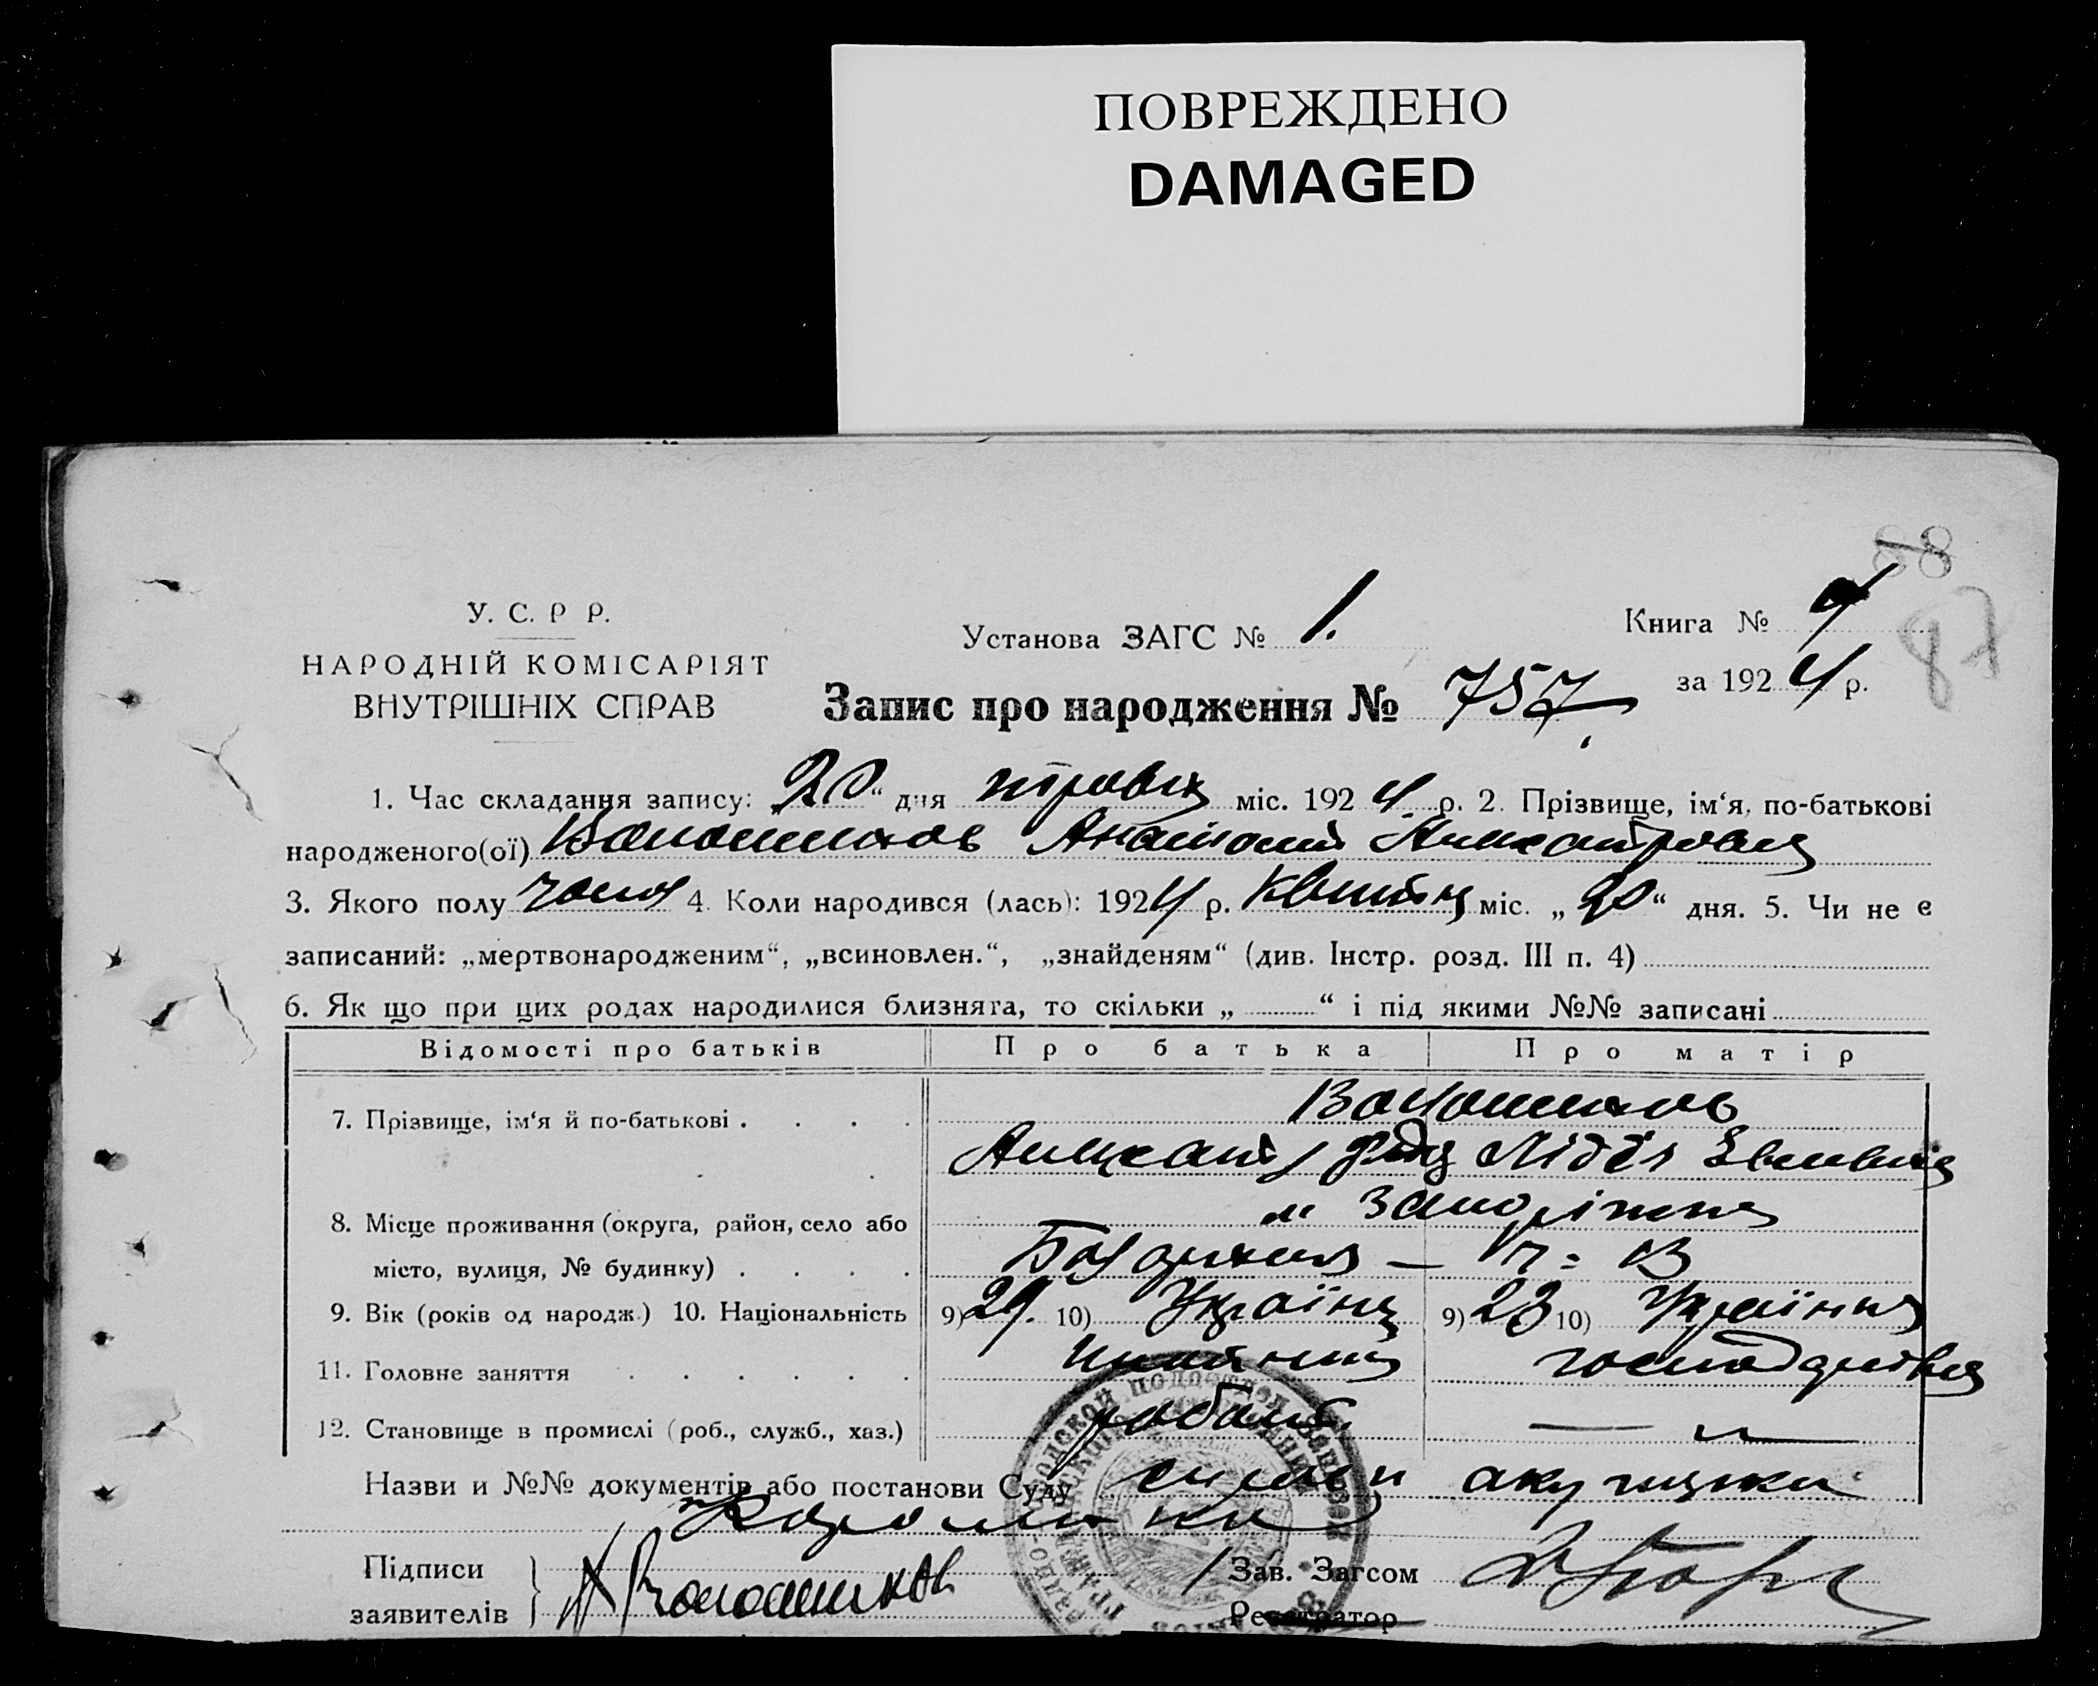 ПОВРЕЖДЕНО
DAMAGED
88
87
У. С. Р Р.
НАРОДНІЙ КОМІСАРІЯТ
ВНУТРІШНІХ СПРАВ
Установа ЗАГС № 1.
Книга №
за 1924 р.
Запис про народження № 757
1. Час складання запису: 20“ дня травня міс. 1924 р. 2. Прізвище, ім‘я, по-батькові
народженого(ої) Волошинов Анатолій Александрович
3. Якого полу чолов 4. Коли народився (лась): 1924 р. Квітня міс. „20“ дня. 5. Чи не є
записаний: „мертвонародженим“, „всиновлен.“, „знайденям“ (див. Інстр. розд. III п. 4)
6. Як що при цих родах народилися близнята, то скільки „ “ і під якими №№ записані
Відомості про батьків Про батька Про матір
7. Прізвище, ім‘я й по-батькові
Волошинов
Лідія
8. Місце проживання (округа, район, село або
м Запоріжжя
місто, вулиця, № будинку)
9. Вік (років од народж.) 10. Національність 9) 29. 10) Українц 9) 23 10) Українка
11. Головне заняття
12. Становище в промислі (роб., служб., хаз.) робітн. — „ —
Назви и №№ документів або постанови Суду акушерки
Підписи
заявителів
А Волошинов
Зав. Загсом
Регстратор